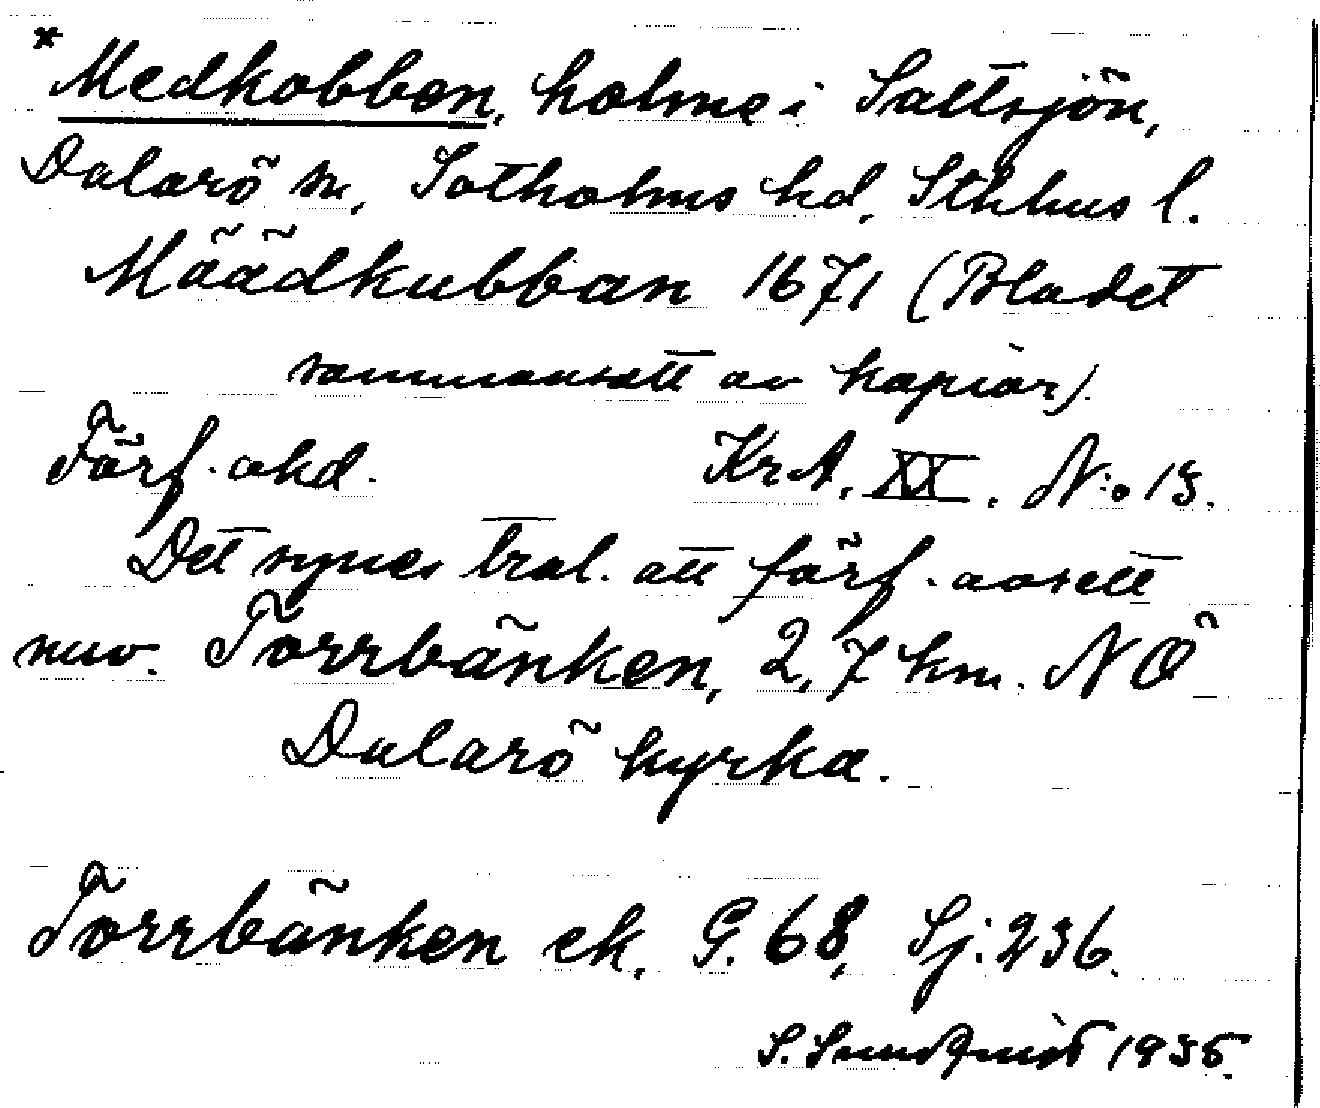 * Medkobben, holme i Saltsjön,
Dalarö sn, Sotholms hd, Sthlms l.
Määdkubban 1671 (Bladet
sammansatt av kopior).
Förf. okd. Kr.A. XX. N:o 13.
Det synes trol. att förf. avsett
nuv. Torrbänken, 2,7 km. NÖ
Dalarö kyrka.
Torrbänken ek. G. 68, Sj. 236.
S. Sundqvist 1935.